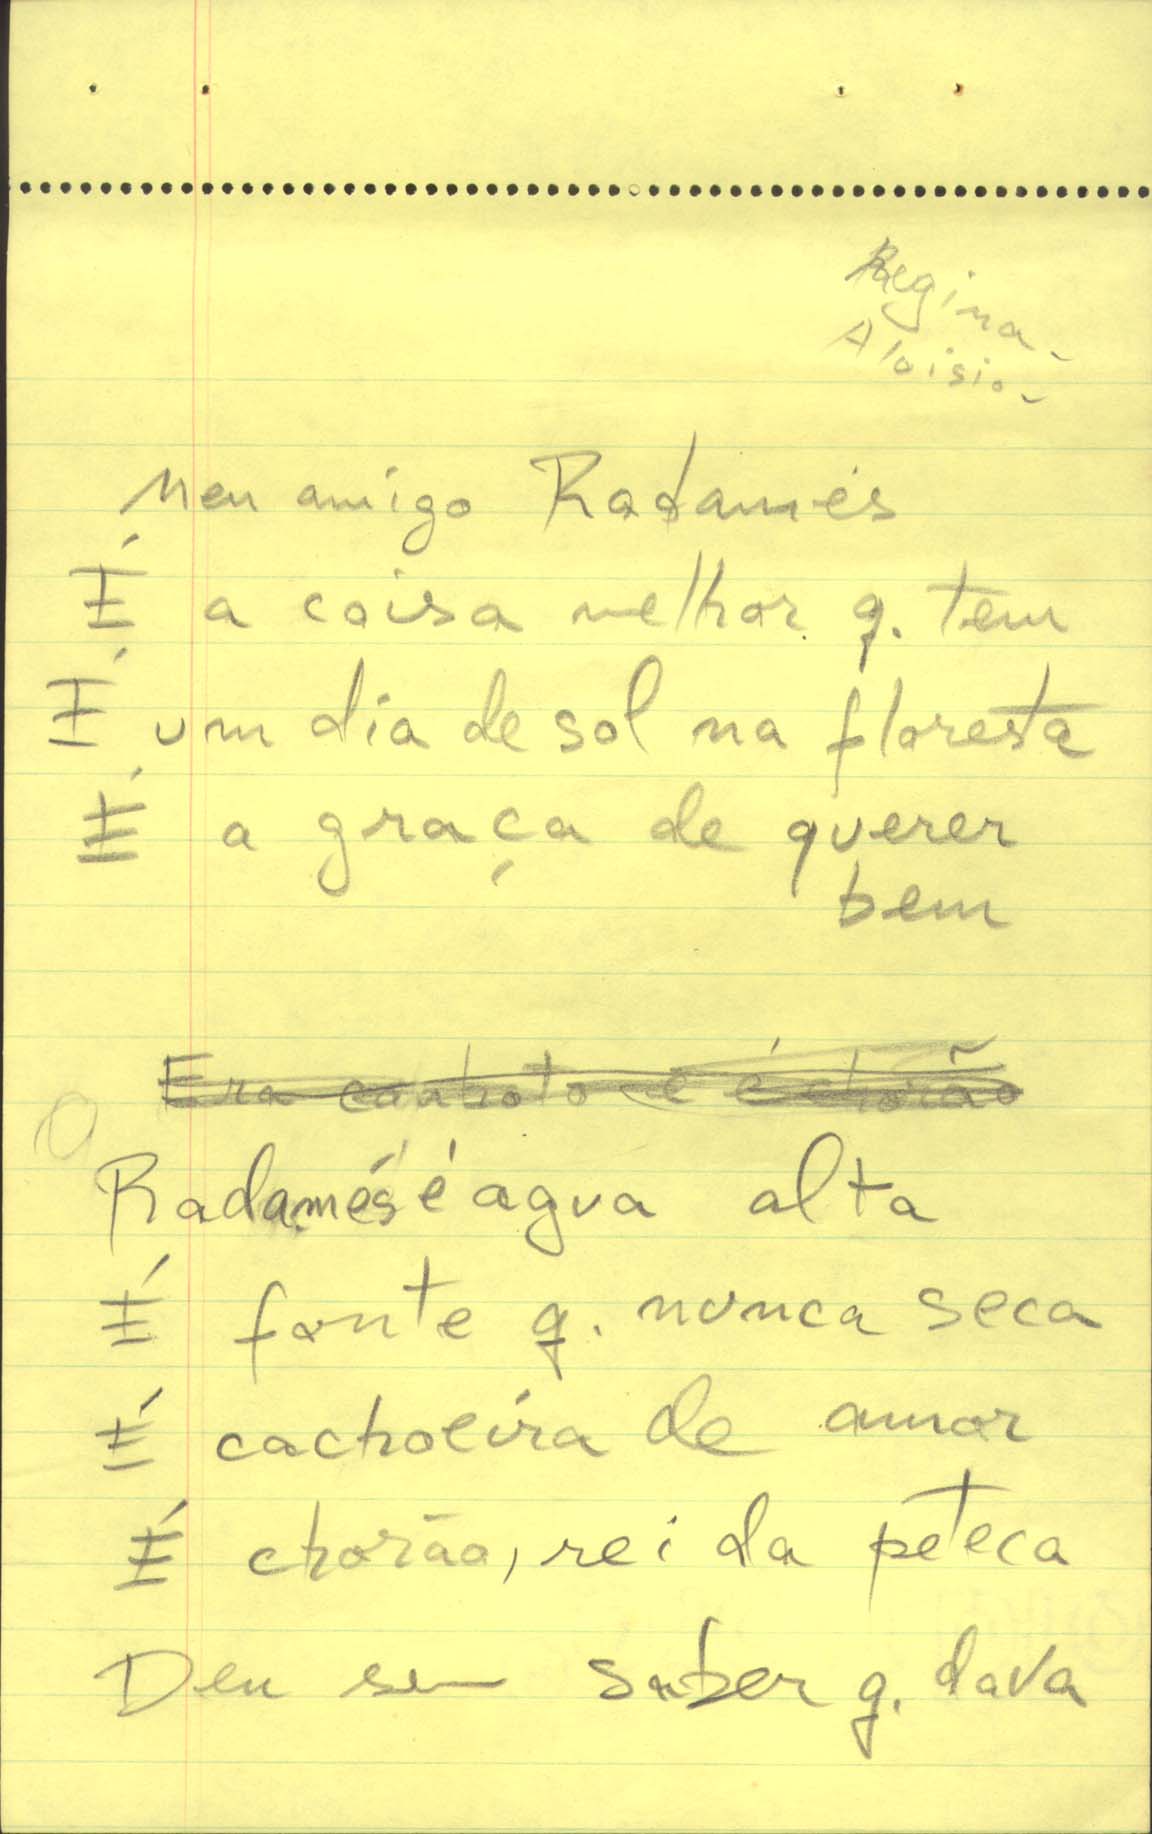 Regina -
Aloisio -
Meu amigo Radamés
É a coisa melhor q. tem
É um dia de sol na floresta
É a graça de querer
bem
Era canhoto e é chorão
Radamés é agua alta
É fonte q. nunca seca
É cachoeira de amor
É chorão, rei da peteca
Deu sem saber q. dava